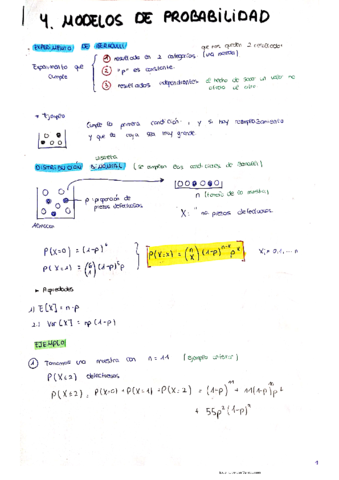 4. MODELOS DE PROBABILIDAD
EXPERIMENTO DE BERNOULLI
que nos queden 2 resultados
Experimento que cumple
1 resultado en 2 categorías
2 "p" es constante.
3 resultados independientes
el hecho de sacar un valor no afecta al otro
* Ejemplo
Cumple la primera condición, y si hay reemplazamiento
y que la caja sea muy grande.
discreta
DISTRIBUCIÓN BINOMIAL (se cumplen las condiciones de Bernoulli)
p: proporción de piezas defectuosas
n (tamaño de la muestra)
X: "nº piezas defectuosas
Almacén
P(X=0) = (1-p)^6
P(X=1) = (6 1) (1-p)^5 p
P(X=x) = (n x) (1-p)^{n-x} p^x
x = 0,1,... n
► Propiedades
1) E[X] = n·p
2) Var[X] = np(1-p)
EJEMPLO
1 Tomamos una muestra con n = 11 (Ejemplo anterior)
P(X≤2) defectuosas
P(X≤2) = P(X=0) + P(X=1) + P(X=2) = (1-p)^11 + 11(1-p)^10 p
+ 55p²(1-p)^9
1